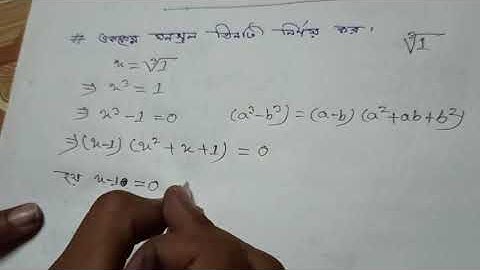 # এককের ঘনমূল তিনটি নির্ণয় কর। ∛1
x = ∛1
⇒ x³ = 1
⇒ x³ - 1 = 0 (a³-b³) = (a-b) (a²+ab+b²)
⇒ (x-1) (x²+x+1) = 0
হয় x-1 = 0